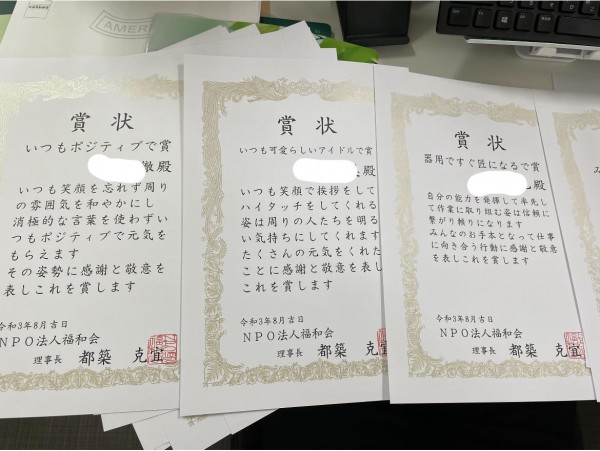 AMERI
賞状
いつもポジティブで賞
徹殿
いつも笑顔を忘れず周り
の雰囲気を和やかにし
消極的な言葉を使わずい
つもポジティブで元気を
もらえます
その姿勢に感謝と敬意を
表しこれを賞します
令和3年8月吉日
NPO法人福和会
理事長 都築 克宜
賞状
いつも可愛らしいアイドルで賞
殿
いつも笑顔で挨拶をして
ハイタッチをしてくれる
姿は周りの人たちを明る
い気持ちにしてくれます
たくさんの元気をくれた
ことに感謝と敬意を表し
これを賞します
令和3年8月吉日
NPO法人福和会
理事長 都築 克
賞状
器用ですぐ匠になるで賞
殿
自分の能力を発揮して率先し
て作業に取り組む姿は信頼に
繋がり頼りになります
みんなのお手本となって仕事
に向き合う行動に感謝と敬意
を表しこれを賞します
令和3年8月吉日
NPO法人福和会
理事長 都築 克宜
み